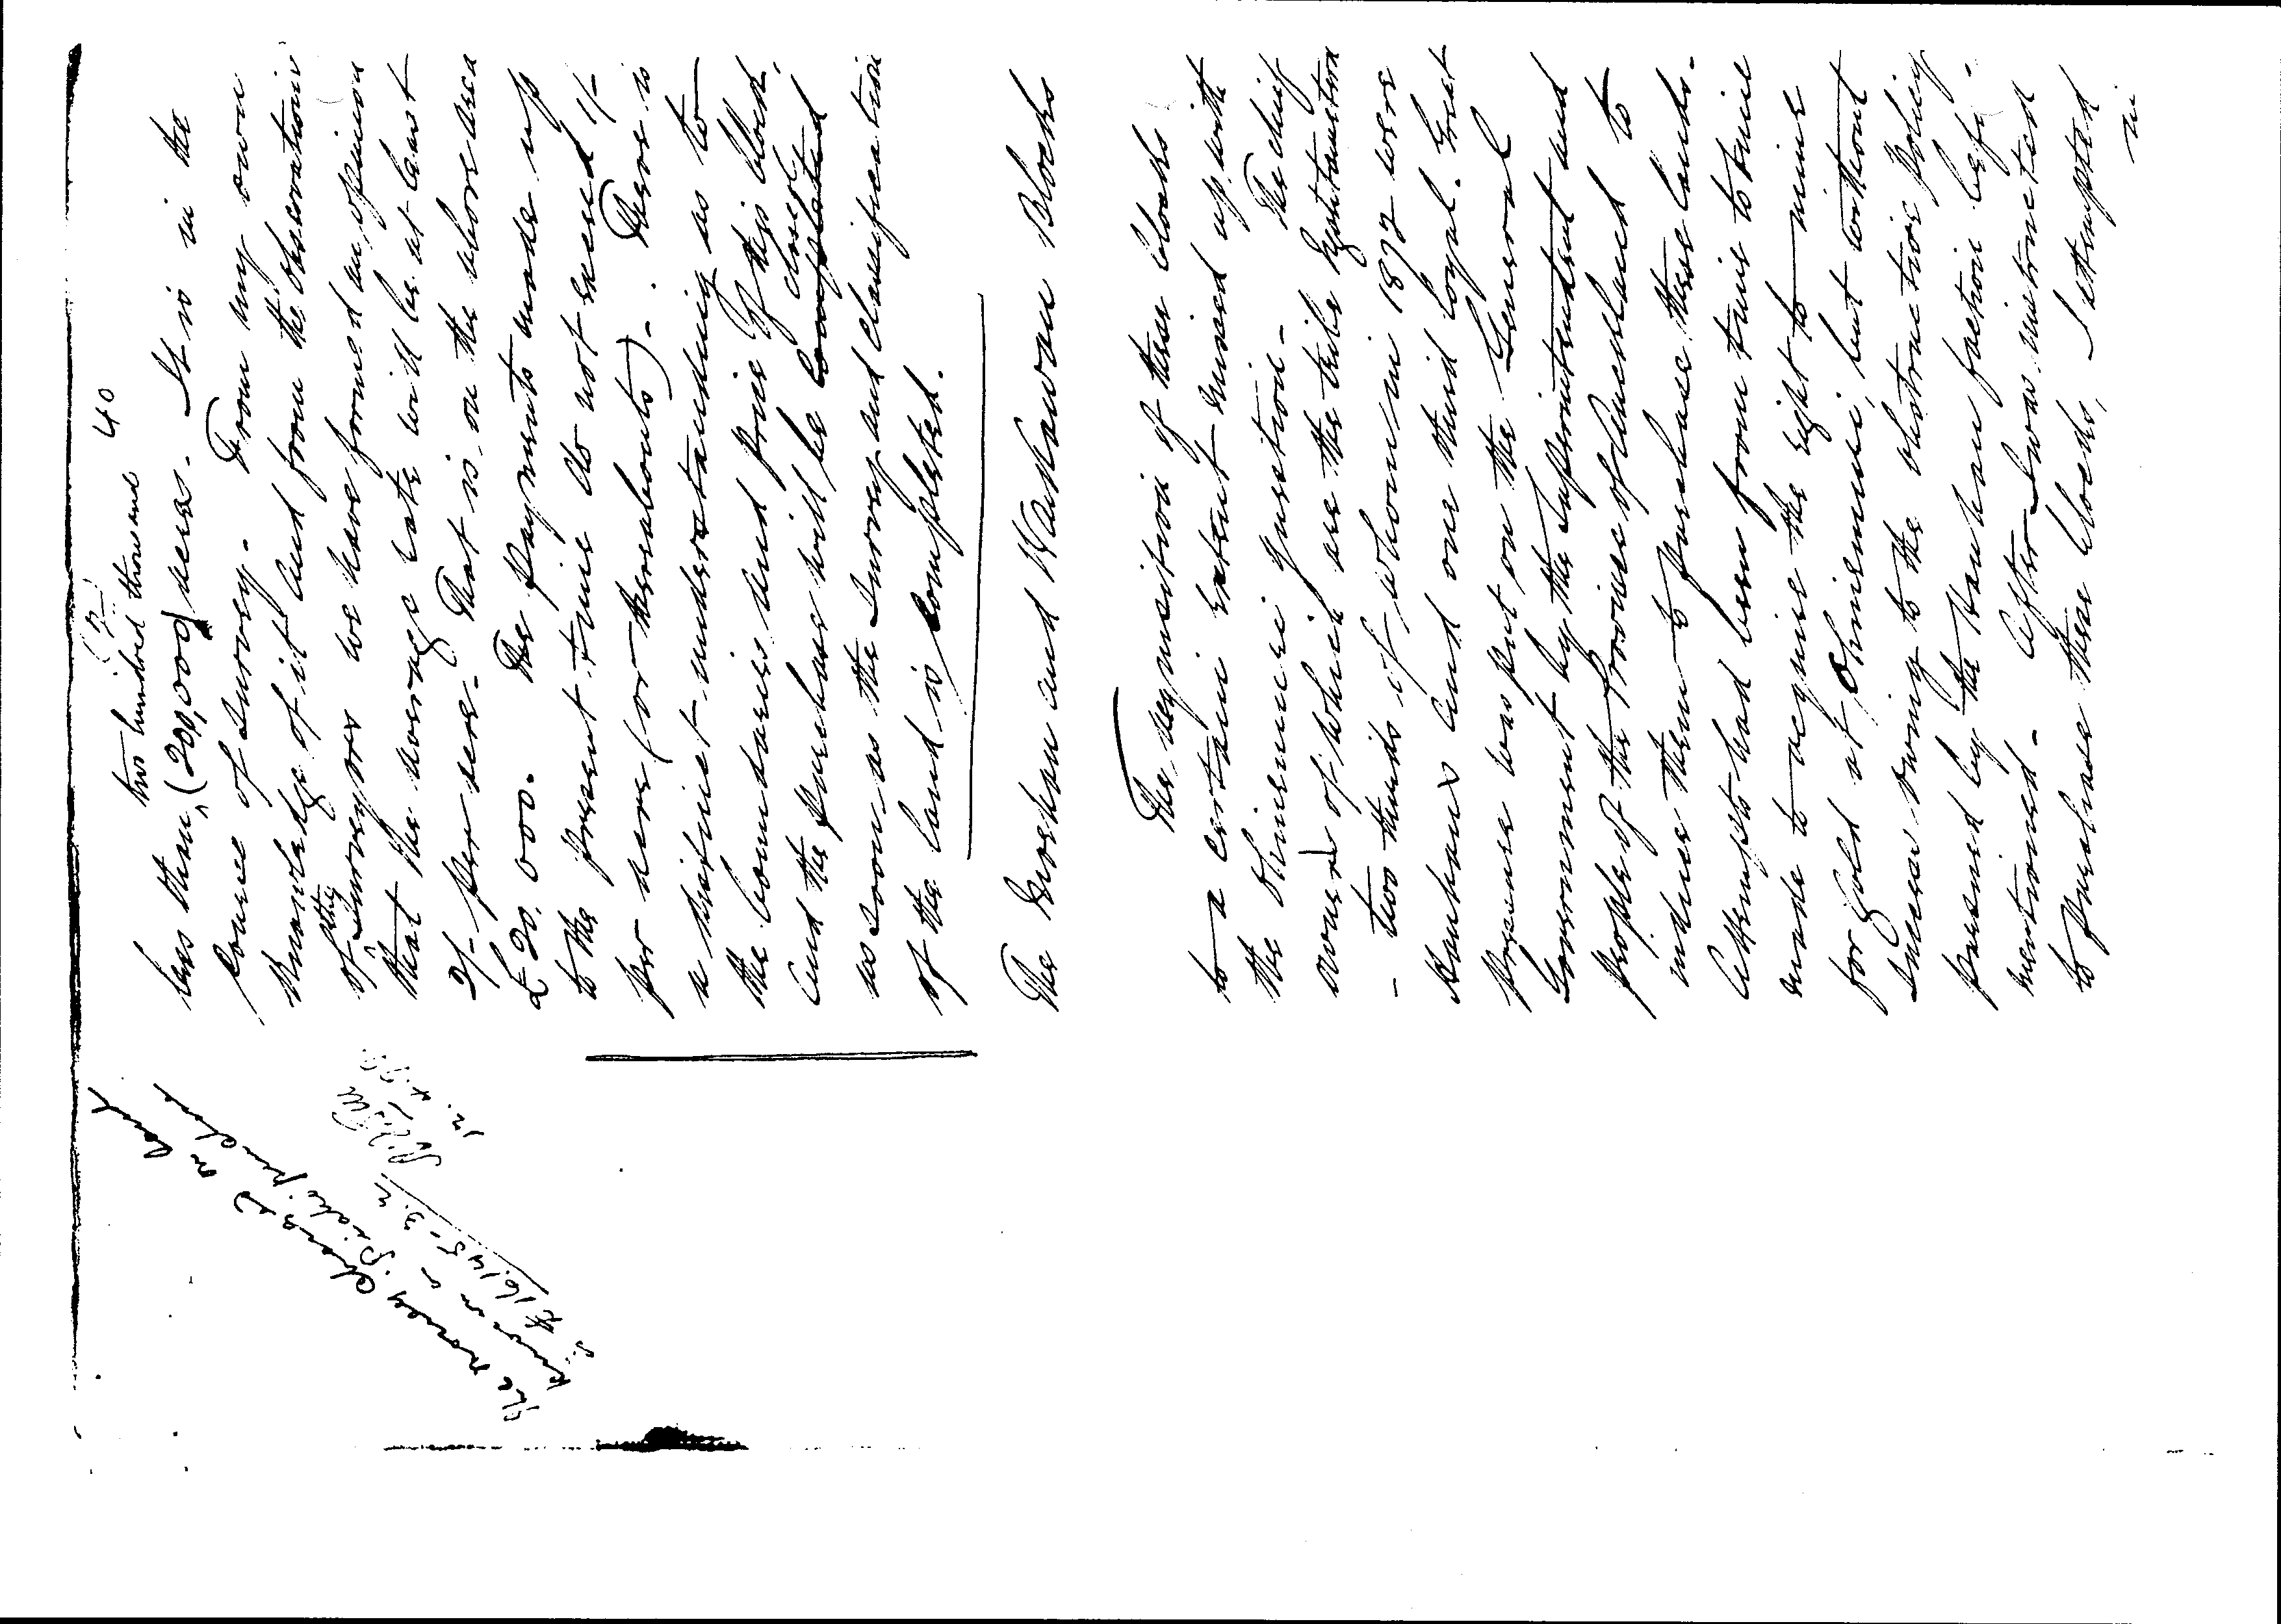 40
two hundred thousand
less than (200,000) acres. It is in the
course of survey. From my own
knowledge of it and from the observations
of the Surveyors we have formed an opinion
that the average rate will be at least
2/- per acre. That is on the above area
£20.000. The payments made up
to the present time do not exceed 1/-
per acre (or thereabouts). There is
a distinct understanding as to
the boundaries and price of this block,
and the purchase will be completed closed
as soon as the Survey and Classification
of the land is completed.
The money charged on land
is £16,145 - 3. 2
12. 4.
The Moehau and Waikawau Blocks
The acquisition of these blocks is
to a certain extent mixed up with
the Ohinemuri question. The chief
owners of which are the tribe Ngatitamatera
- two thirds of whom in 1872 were
Hauhaus and one third loyal. Great
pressure was put on the General
Government by the Superintendent and
people of the Province of Auckland to
induce them to purchase these lands.
Attempts had been from time to time
made to acquire the right to mine
for gold at Ohinemuri, but without
success owing to the obstructive policy
pursued by the Hauhau faction before
mentioned. After I was instructed
to purchase these blocks, I attempted